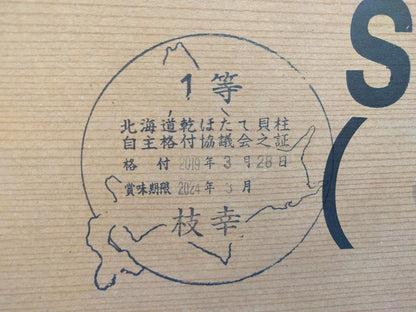 1 等
北海道乾ほたて貝柱
自主格付協議会之証
格 付 2019 年 3 月 28 日
賞味期限 2024 年 3 月
枝幸
S
(